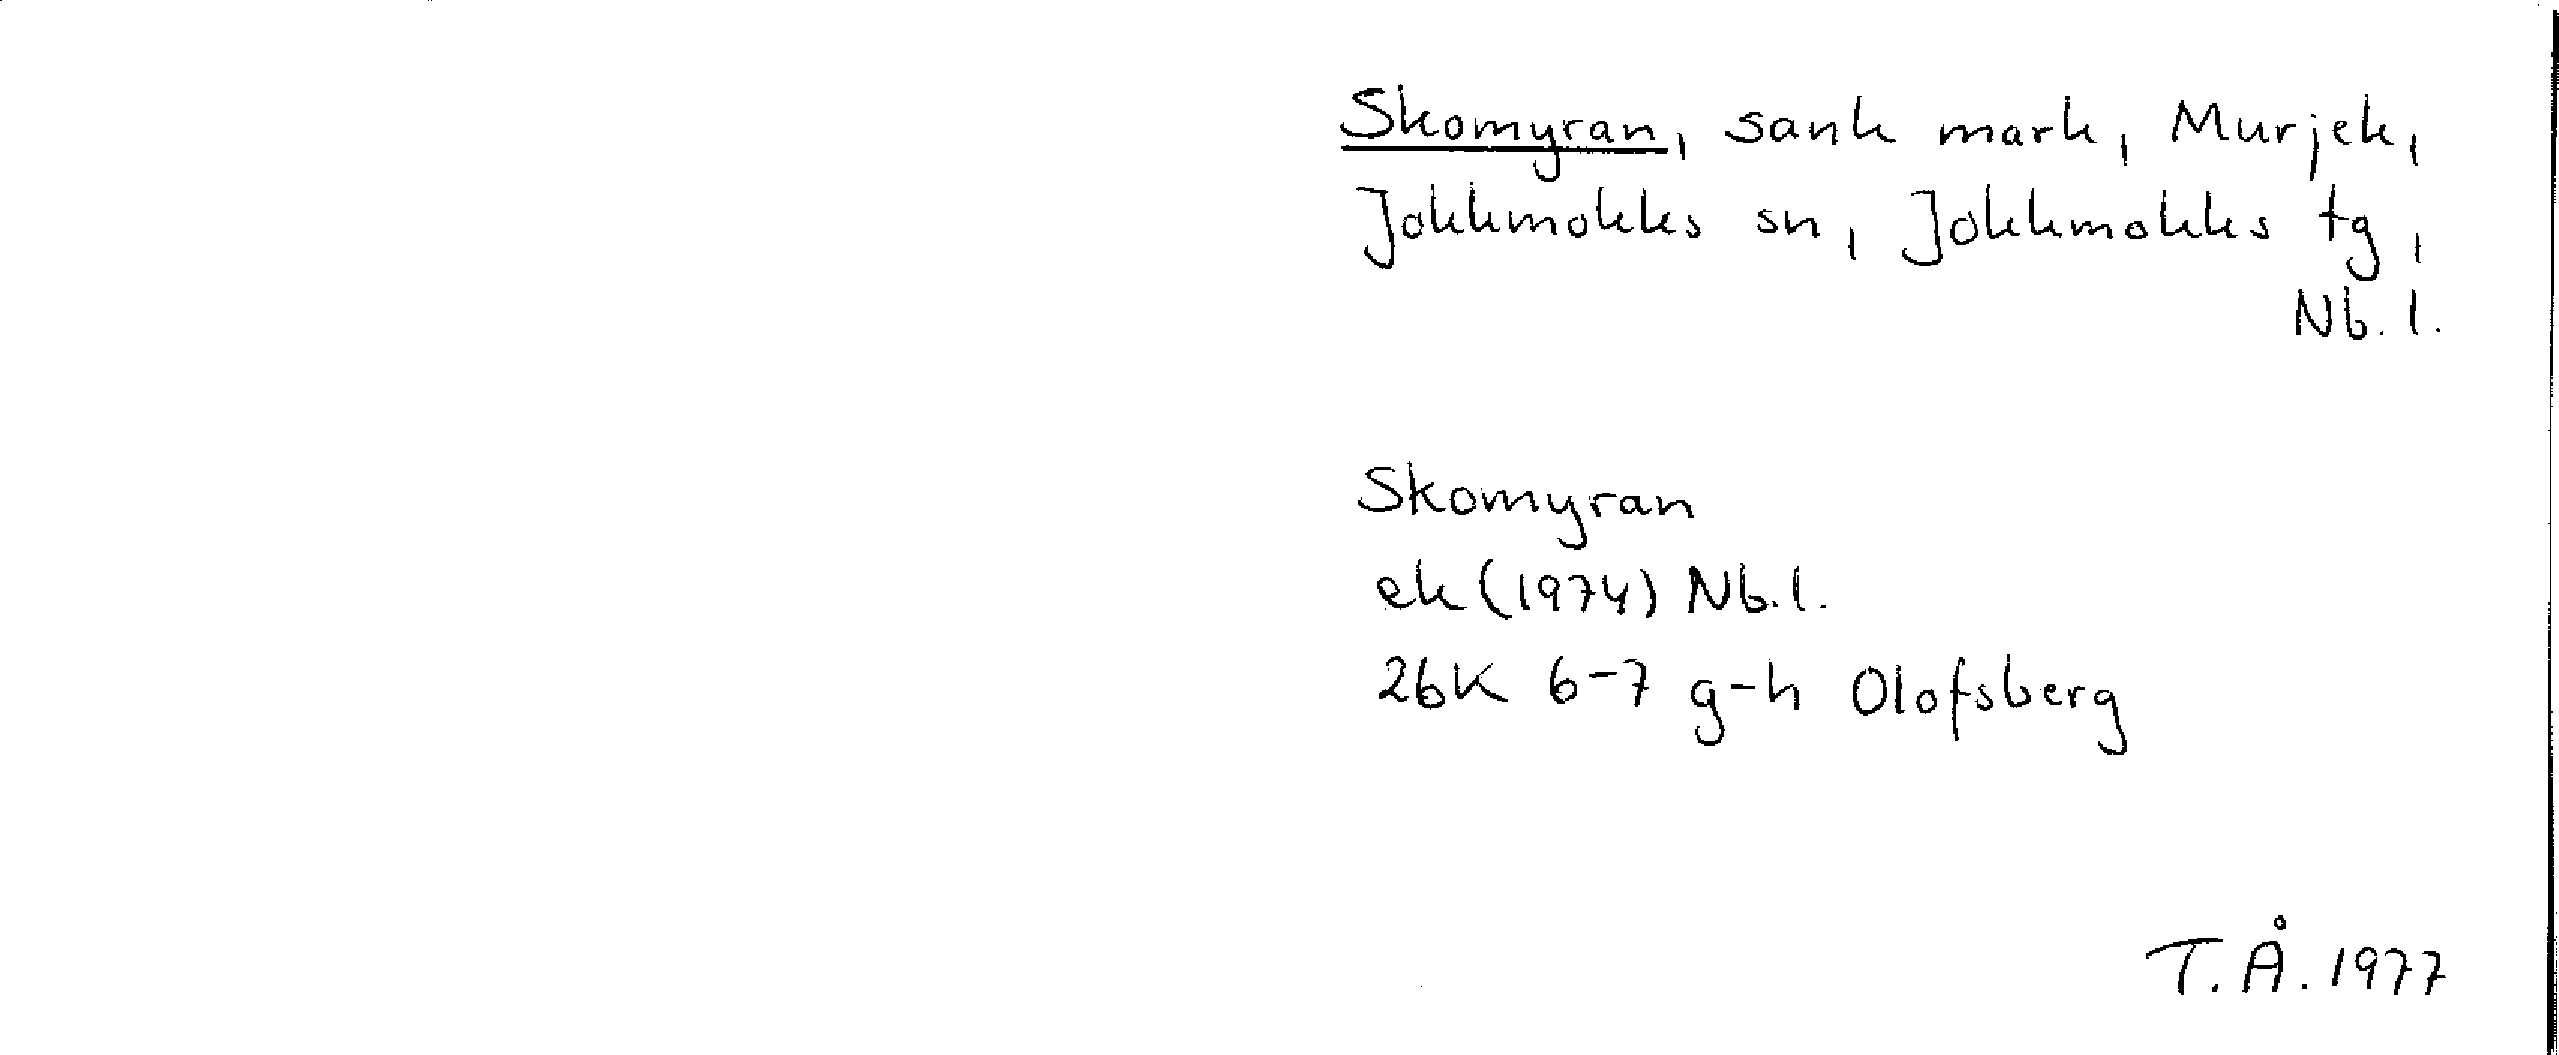 Skomyran, sank mark, Murjek,
Jokkmokks sn, Jokkmokks tg,
Nb. l.
Skomyran
ek (1974) Nb. l.
26K 6-7 g-h Olofsberg
T. Å. 1977